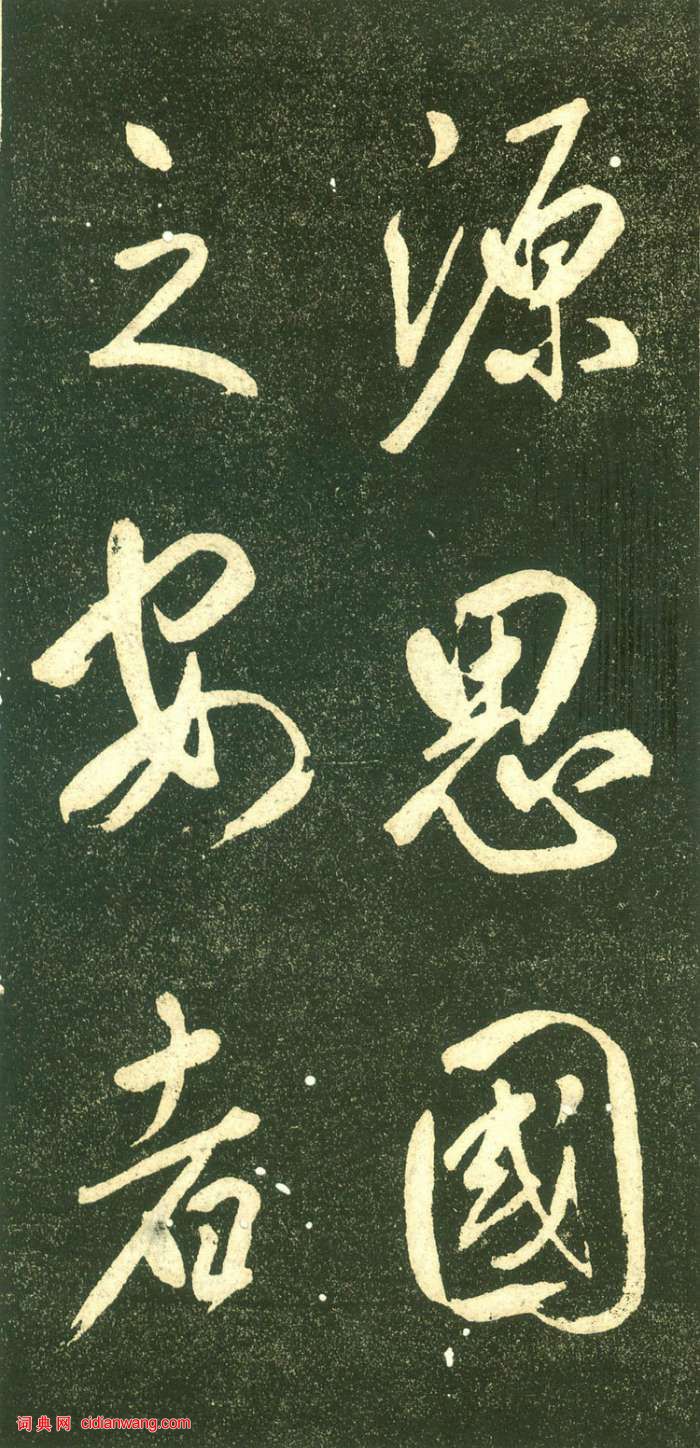 源思國
之安者
词典网 cidianwang.com